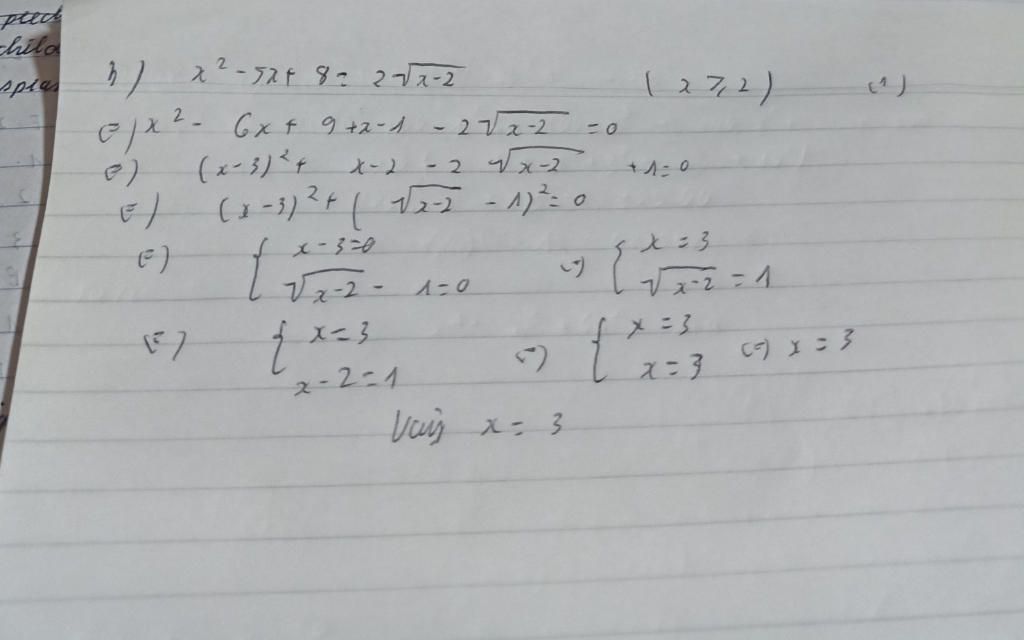 pied
child
spies
3) x² - 5x + 8 = 2√(x-2) (x ⩾ 2) (1)
⇔) x² - 6x + 9 + x - 1 - 2√(x-2) = 0
⇔) (x-3)² + x - 2 - 2√(x-2) + 1 = 0
⇔) (x-3)² + (√(x-2) - 1)² = 0
⇔) { x - 3 = 0 ⇔) { x = 3
√(x-2) - 1 = 0 √(x-2) = 1
⇔) { x = 3 ⇔) { x = 3 ⇔) x = 3
x - 2 = 1 x = 3
Vậy x = 3